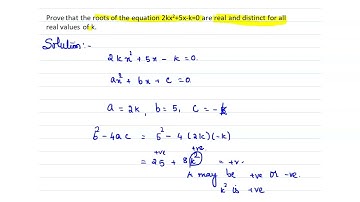 Prove that the roots of the equation 2kx²+5x-k=0 are real and distinct for all
real values of k.
Solution:-
2kx² + 5x - k = 0.
ax² + bx + c = 0.
a = 2k, b = 5, c = -k
b² - 4ac = 5² - 4 (2k)(-k)
+ve +ve
= 25 + 8k² = +v.
k may be +ve or -ve.
k² is +ve